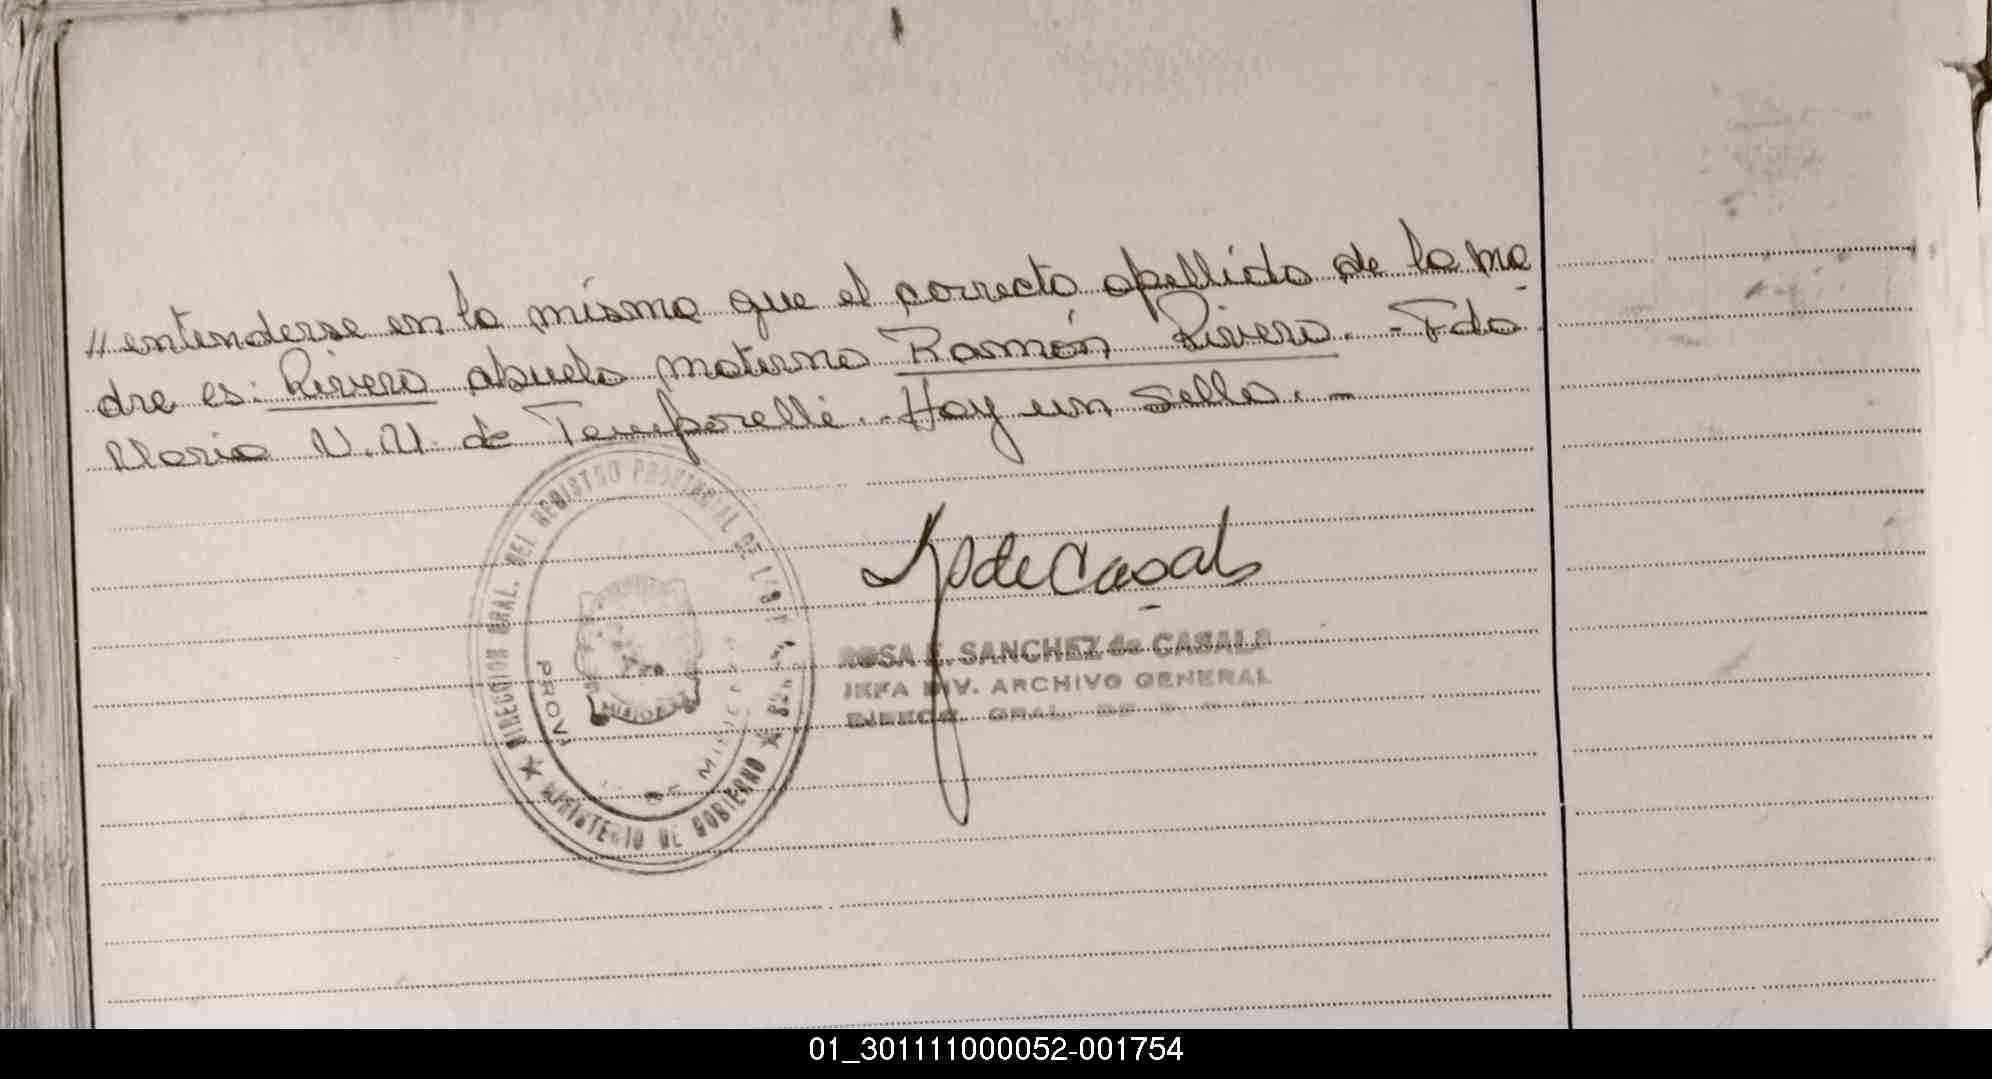 //entenderse en la misma que el correcto apellido de la ma
dre es: Rivero abuelo materno Ramón Rivero.-Fdo.
Maria N.M. de Temporelli.-Hay un sello.-
DIRECCION GRAL. DEL REGISTRO PROVINCIAL DE LAS
PROV. DE MISIONES
MISIONES
★ MINISTERIO DE GOBIERNO ★
de Casals
ROSA E. SANCHEZ de CASALS
JEFA DIV. ARCHIVO GENERAL
DIRECC. GRAL. DE
01_301111000052-001754